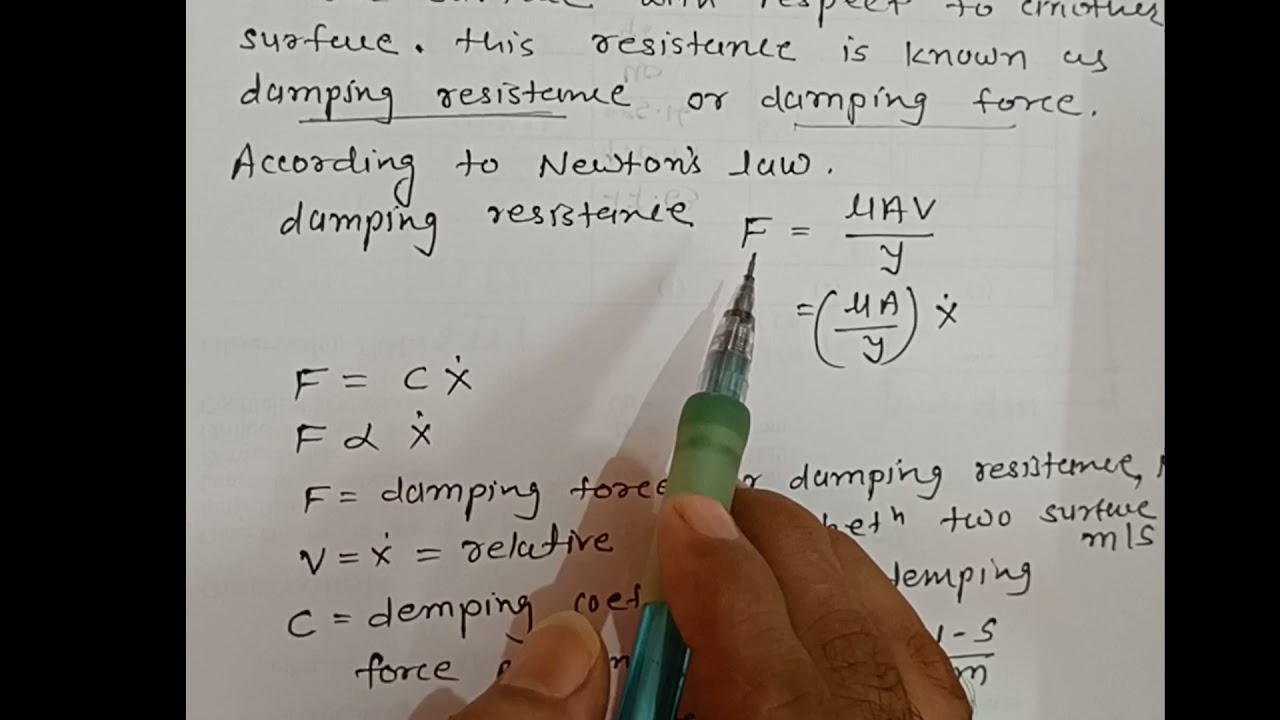 surface with respect to another
surface. this resistance is known as
damping resistance or damping force.
According to Newton's law.
damping resistance F = μAV / y
= (μA / y) ẋ
F = C ẋ
F α ẋ
F = damping force or damping resistance,
V = ẋ = relative betn two surface m/s
C = demping coef demping
force